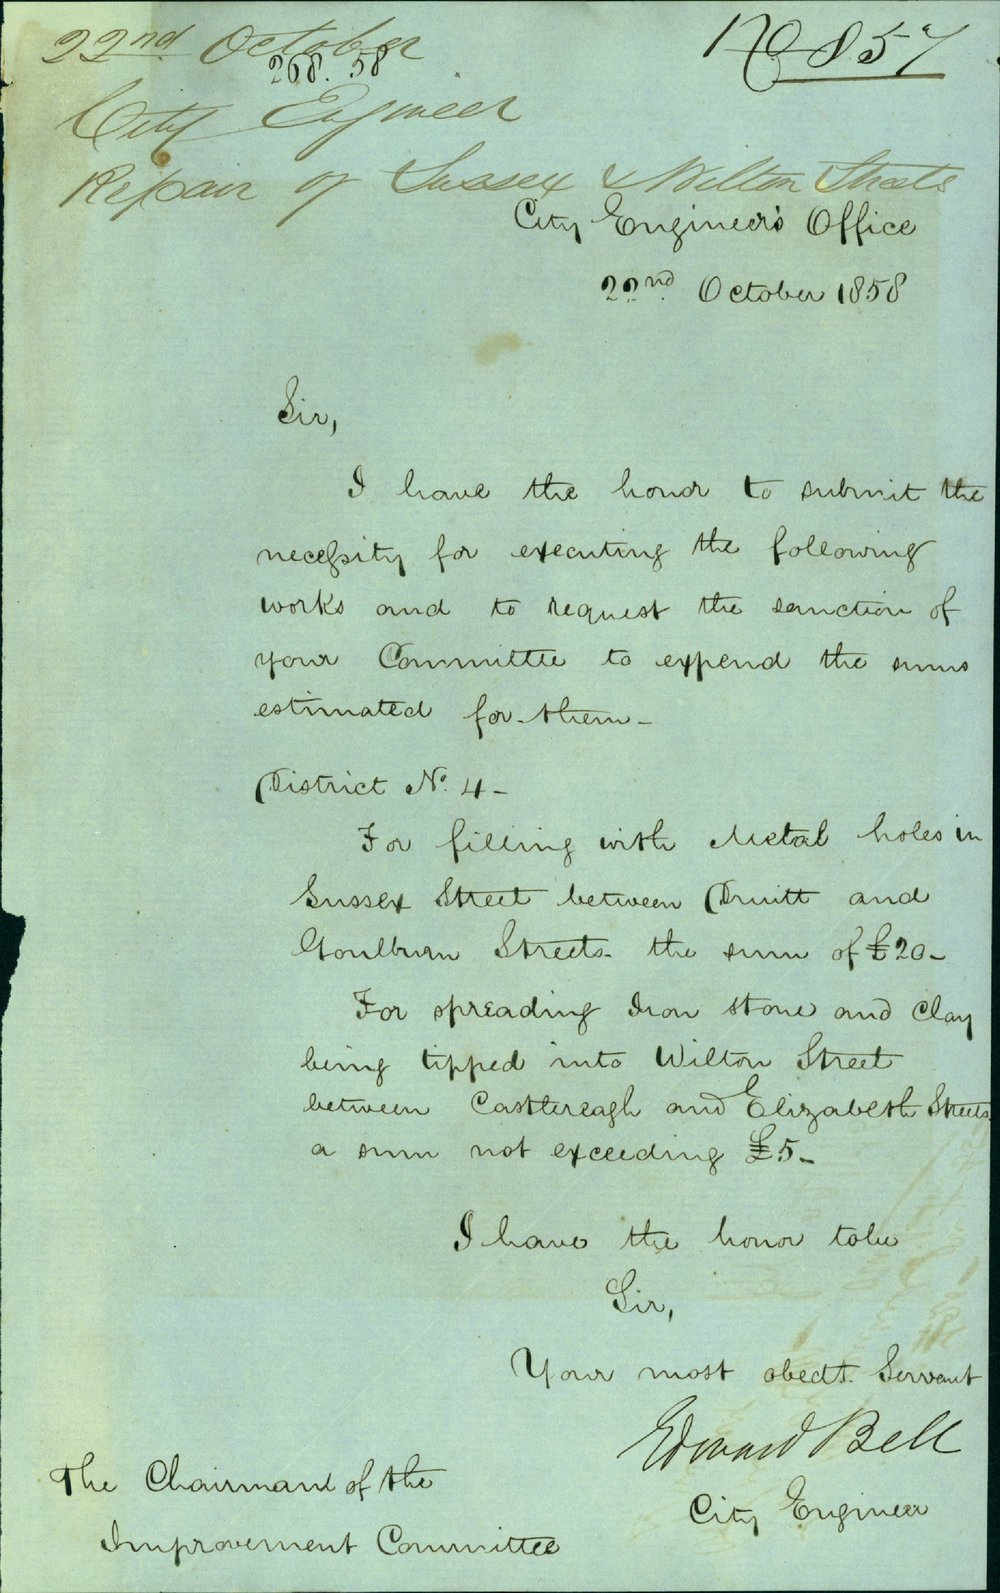 22nd October
268.58
No 857
City Engineer
Repair of Sussex & Wilton Streets
City Engineer's Office
22nd October 1858
Sir,
I have the honor to submit the
necessity for executing the following
works and to request the sanction of
your Committee to expend the sums
estimated for them -
District No. 4 -
For filling with Metal holes in
Sussex Street between Druitt and
Goulburn Streets - the sum of £20 -
For spreading Iron stone and Clay
being tipped into Wilton Street
between Castlereagh and Elizabeth Streets
a sum not exceeding £5 -
I have the honor to be
Sir,
Your most obedt. Servant
Edward Bell
City Engineer
The Chairman of the
Improvement Committee